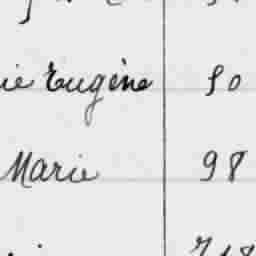 ie Eugène 50
Marie 98